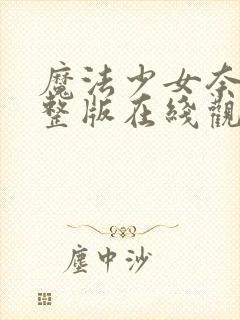 魔法少女奈
整版在綫觀
塵中沙